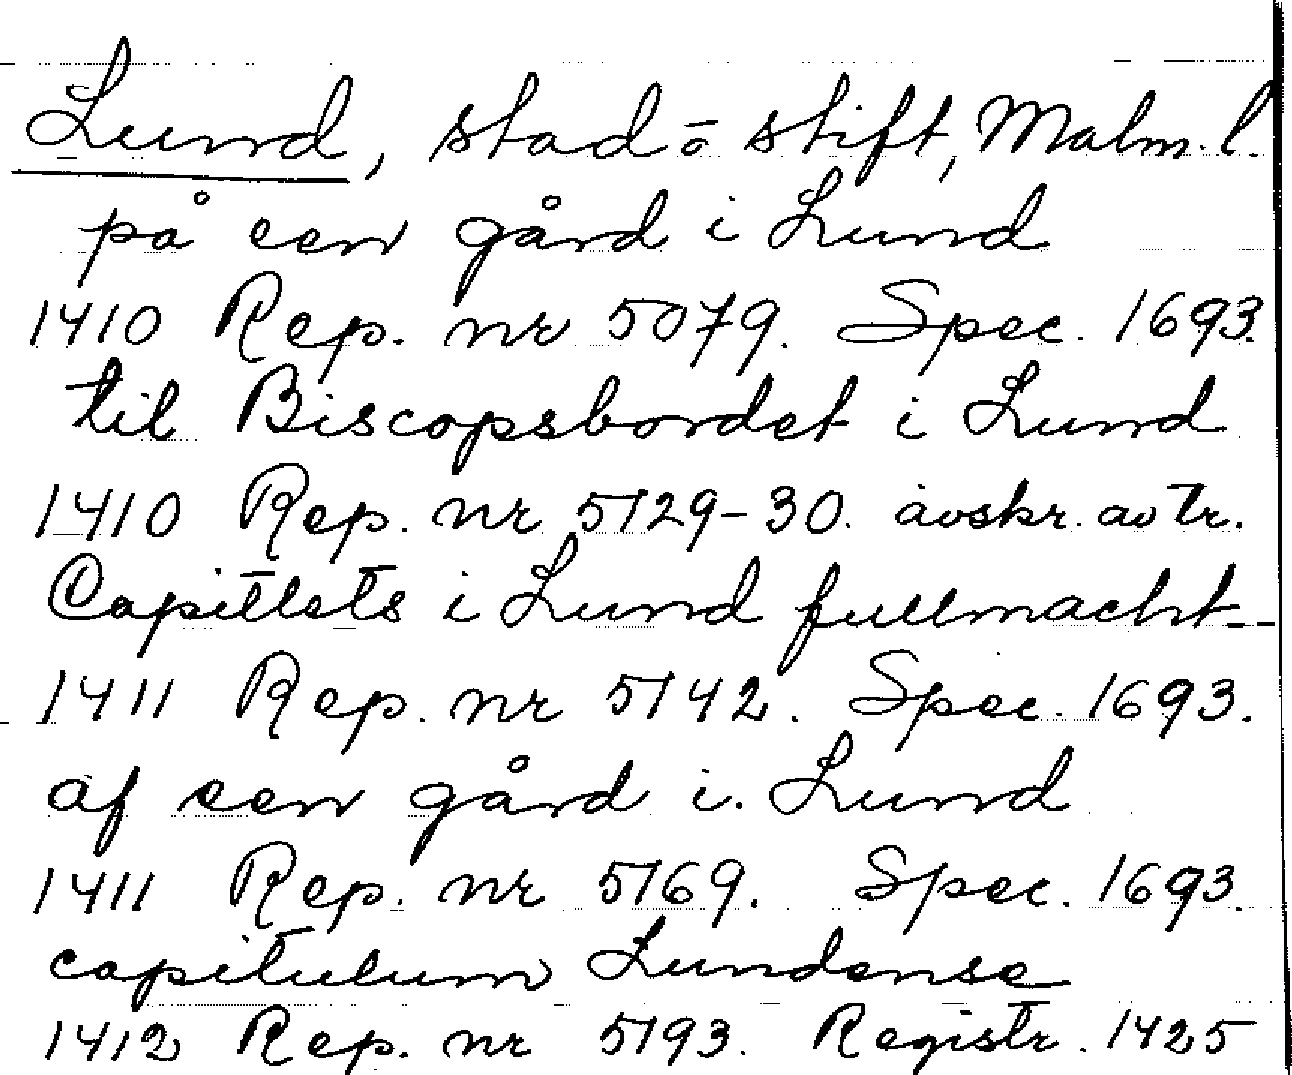 Lund, stad o stift, Malm. l.
på een gård i Lund
1410 Rep. nr 5079. Spec. 1693.
til Biscopsbordet i Lund
1410 Rep. nr 5129-30. avskr. av tr.
Capitlets i Lund fullmacht--
1411 Rep. nr 5142. Spec. 1693.
af een gård i. Lund
1411 Rep. nr 5169. Spec. 1693.
capitulum Lundense
1412 Rep. nr 5193. Registr. 1425